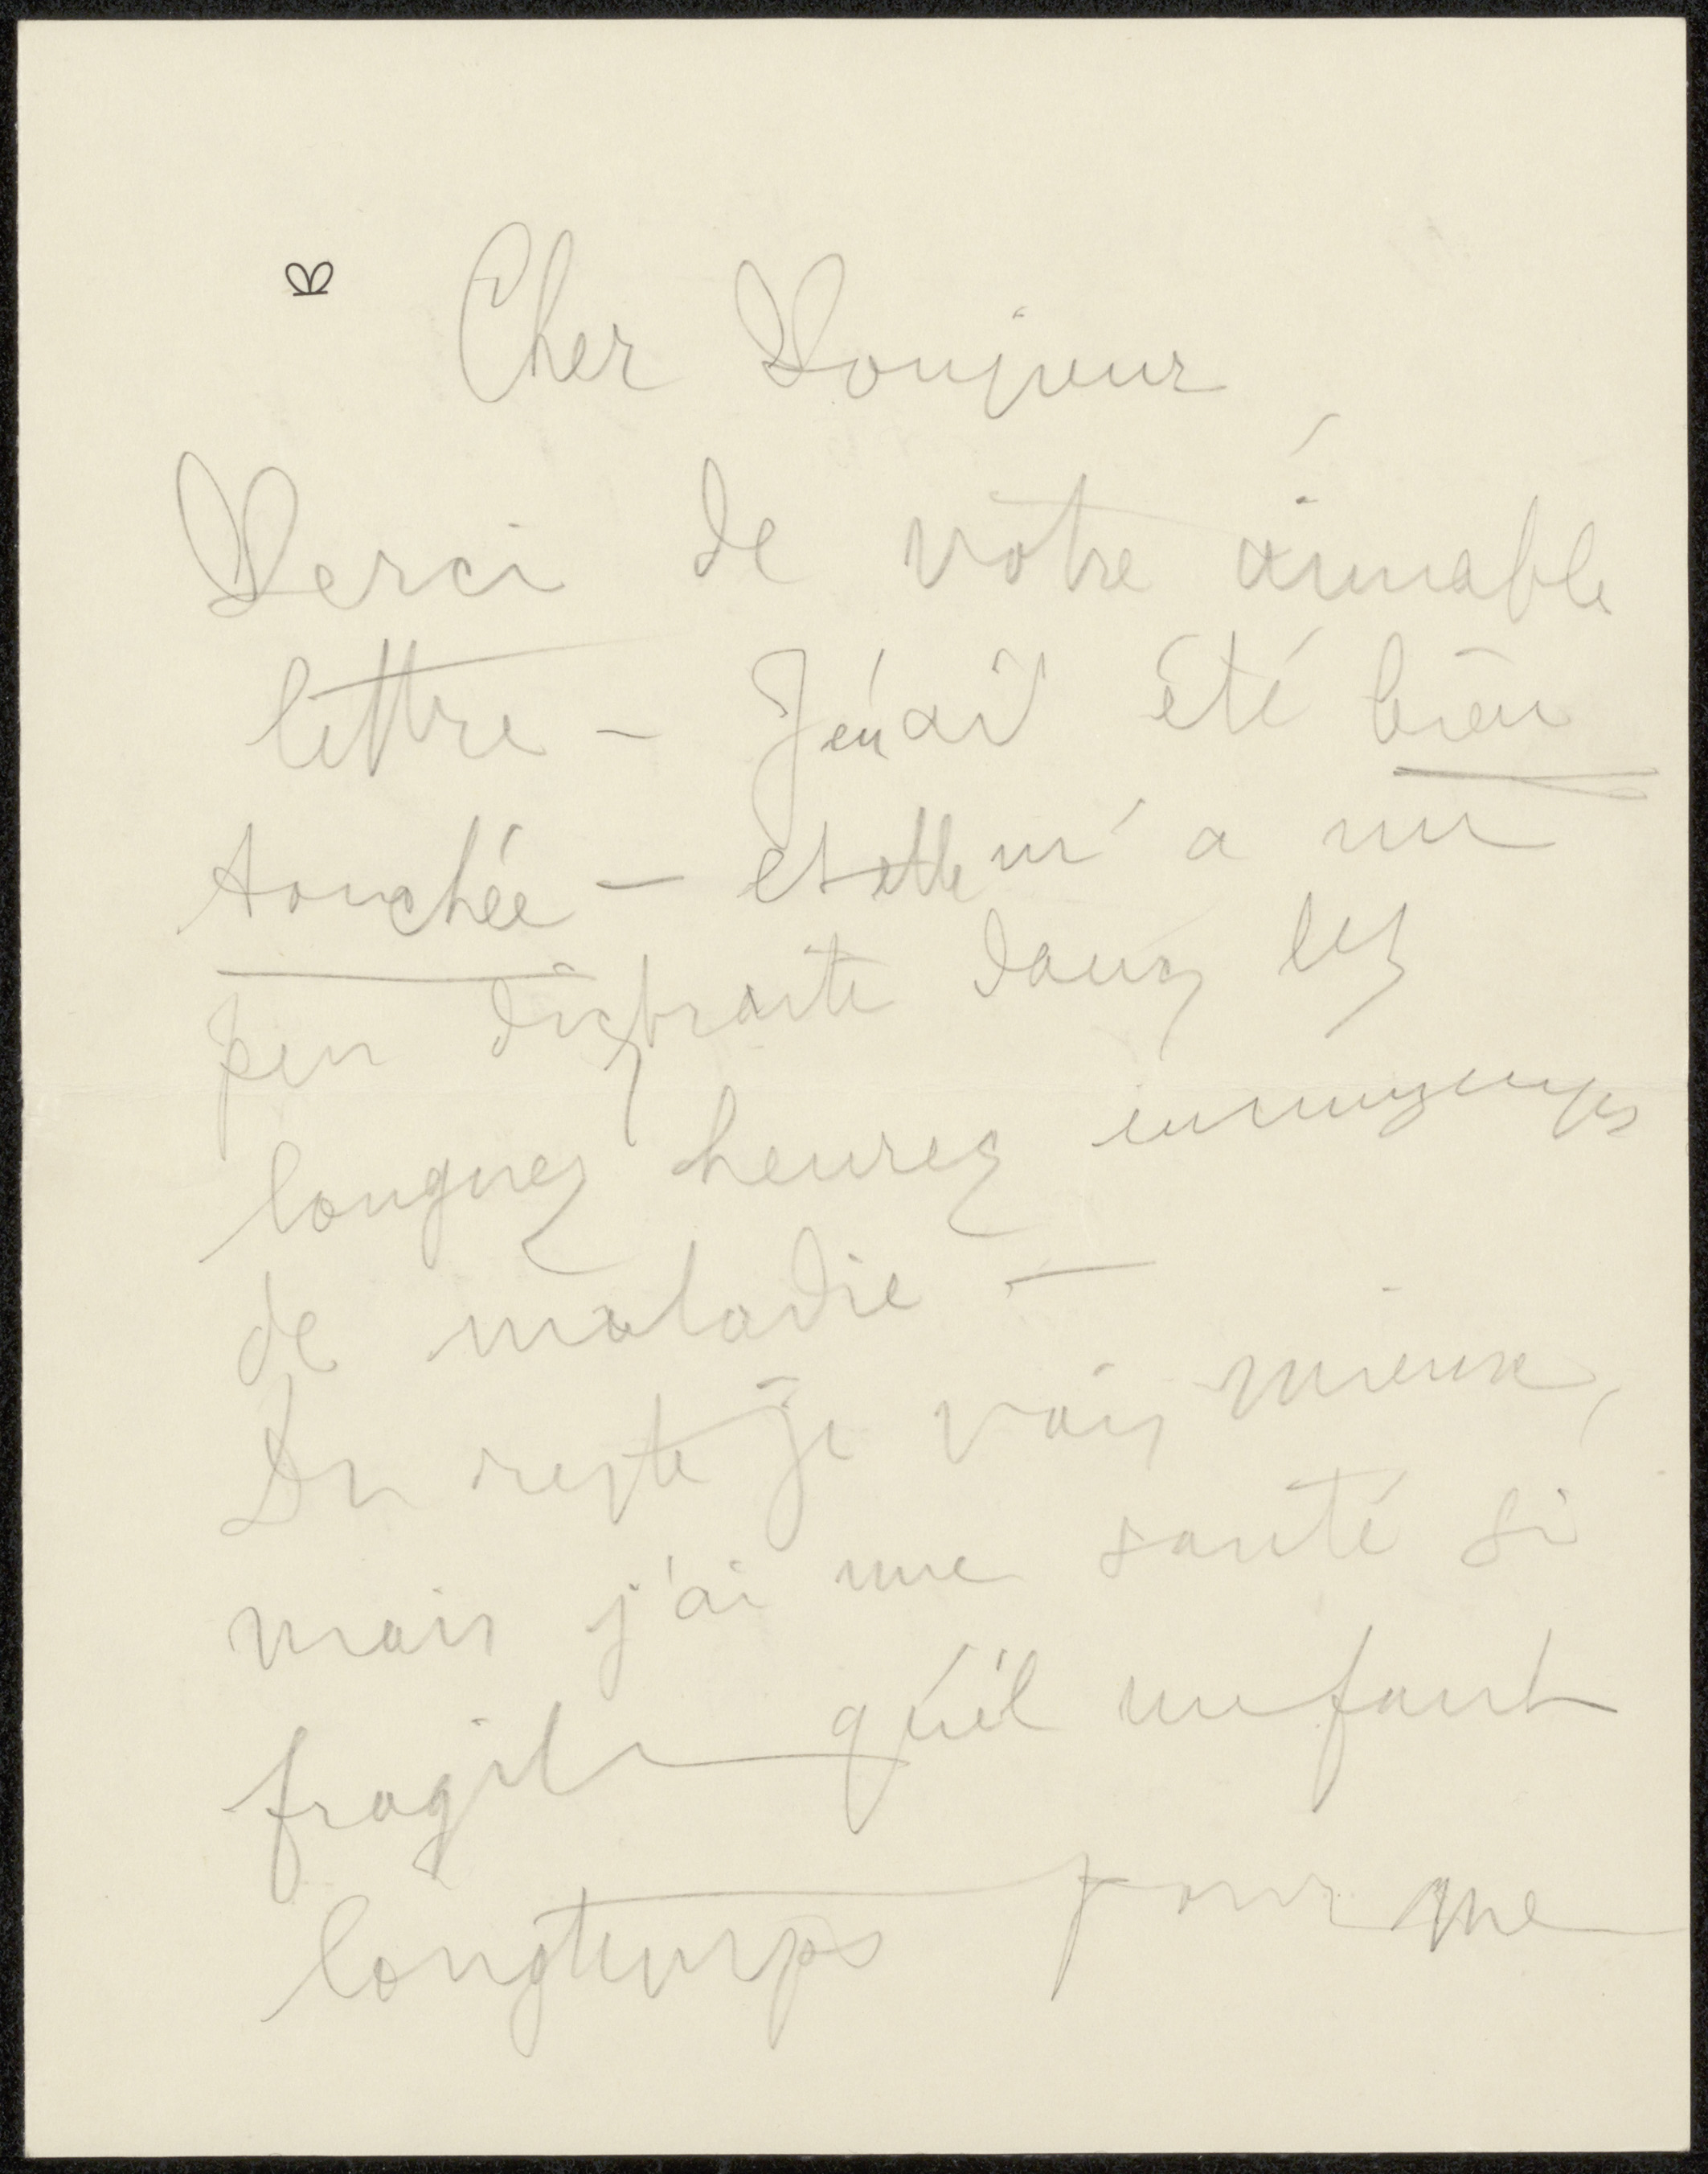 Cher Monsieur
Merci de votre aimable
lettre – J'en ai été bien
touchée – et elle m'a un
peu distraite dans les
longues heures ennuyeuses
de maladie –
Du reste je vais mieux,
mais j'ai une santé si
fragile qu'il me faut
longtemps pour me